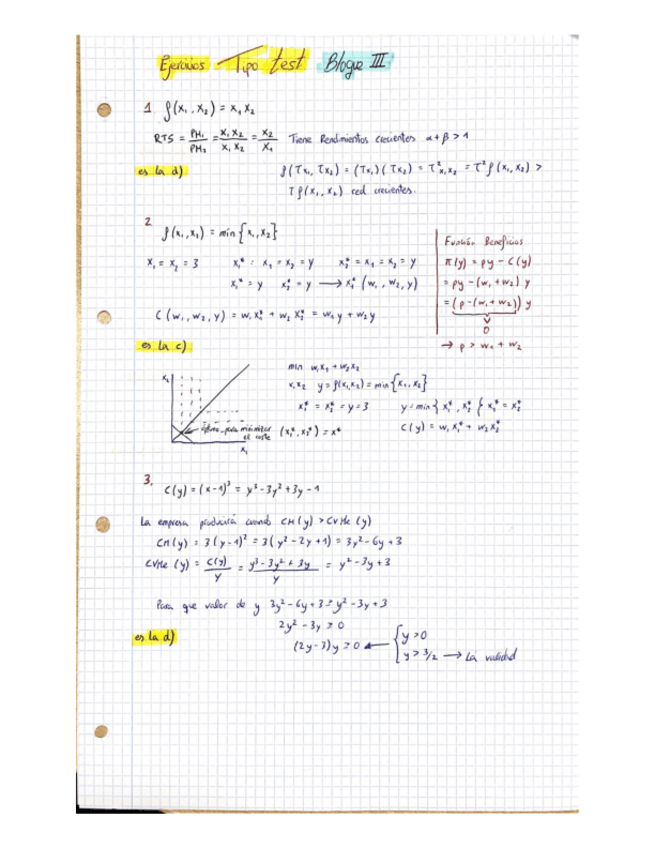 Ejercicios Tipo test Bloque III
1 f(x₁,x₂) = x₁x₂
RTS = PM₁/PM₂ = x₁x₂/x₁x₂ = x₂/x₁ Tiene Rendimientos crecientes α+β>1
es la d) f(Tx₁, Tx₂) = (Tx₁)(Tx₂) = T²x₁x₂ = T²f(x₁,x₂) >
Tf(x₁,x₂) red crecientes.
2
f(x₁,x₂) = min{x₁,x₂}
x₁ = x₂ = 3 x₁* = x₁ = x₂ = y x₂* = x₁ = x₂ = y
x₁* = y x₂* = y → x₁*(w₁,w₂,y)
C(w₁,w₂,y) = w₁x₁* + w₂x₂* = w₁y + w₂y
Función Beneficios
π(y) = py - C(y)
= py - (w₁+w₂)y
= (p-(w₁+w₂))y
0
→ p > w₁ + w₂
es la c)
min w₁x₁ + w₂x₂
x₁x₂ y = f(x₁,x₂) = min{x₁,x₂}
x₁* = x₂* = y = 3 y = min{x₁*, x₂*} x₁* = x₂*
C(y) = w₁x₁* + w₂x₂*
x₂
óptimo para minimizar el coste (x₁*,x₂*) = x*
x₁
3.
C(y) = (x-1)³ = y³-3y²+3y-1
La empresa producirá cuando CM(y) > CVMe(y)
CM(y) = 3(y-1)² = 3(y²-2y+1) = 3y²-6y+3
CVMe(y) = C(y)/y = y³-3y²+3y/y = y²-3y+3
Para que valor de y 3y²-6y+3 = y²-3y+3
2y²-3y ≥ 0
es la d) (2y-3)y ≥ 0 ← { y>0
y > 3/2 → La validad